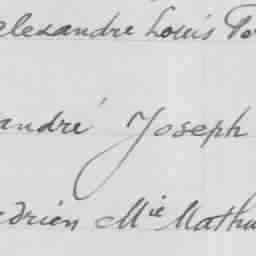 alexandre Louis To
andré Joseph
adrien Mie Mathu